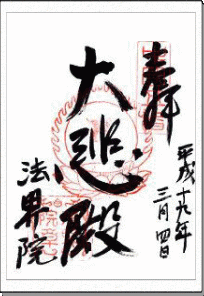 奉拝
平成十九年
三月四日
大悲殿
法界院